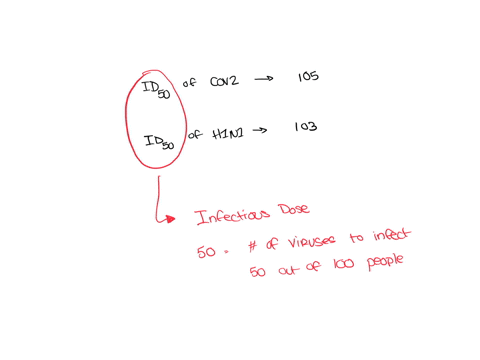 ID50 of COV2 → 105
ID50 of H1N1 → 103
Infectious Dose
50 = # of viruses to infect
50 out of 100 people